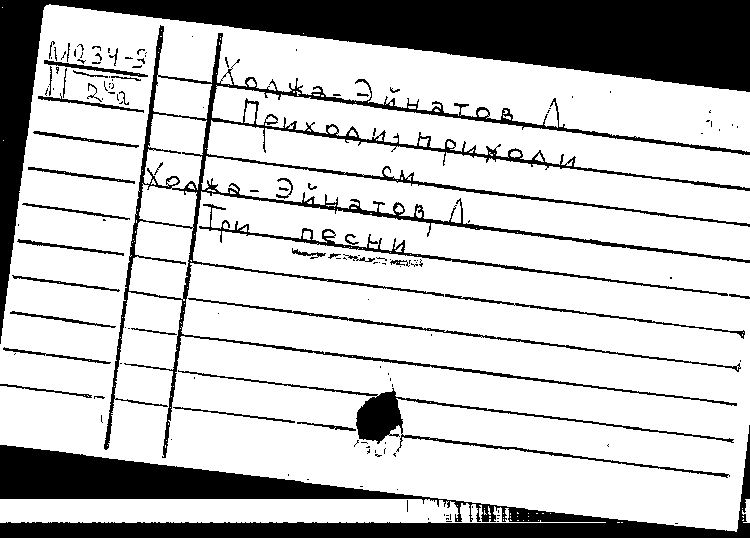 М234-3
М 2ба
Ходжа-Эйнатов, Л.
Приходи, приходи
см
Ходжа-Эйнатов, Л.
Три песни